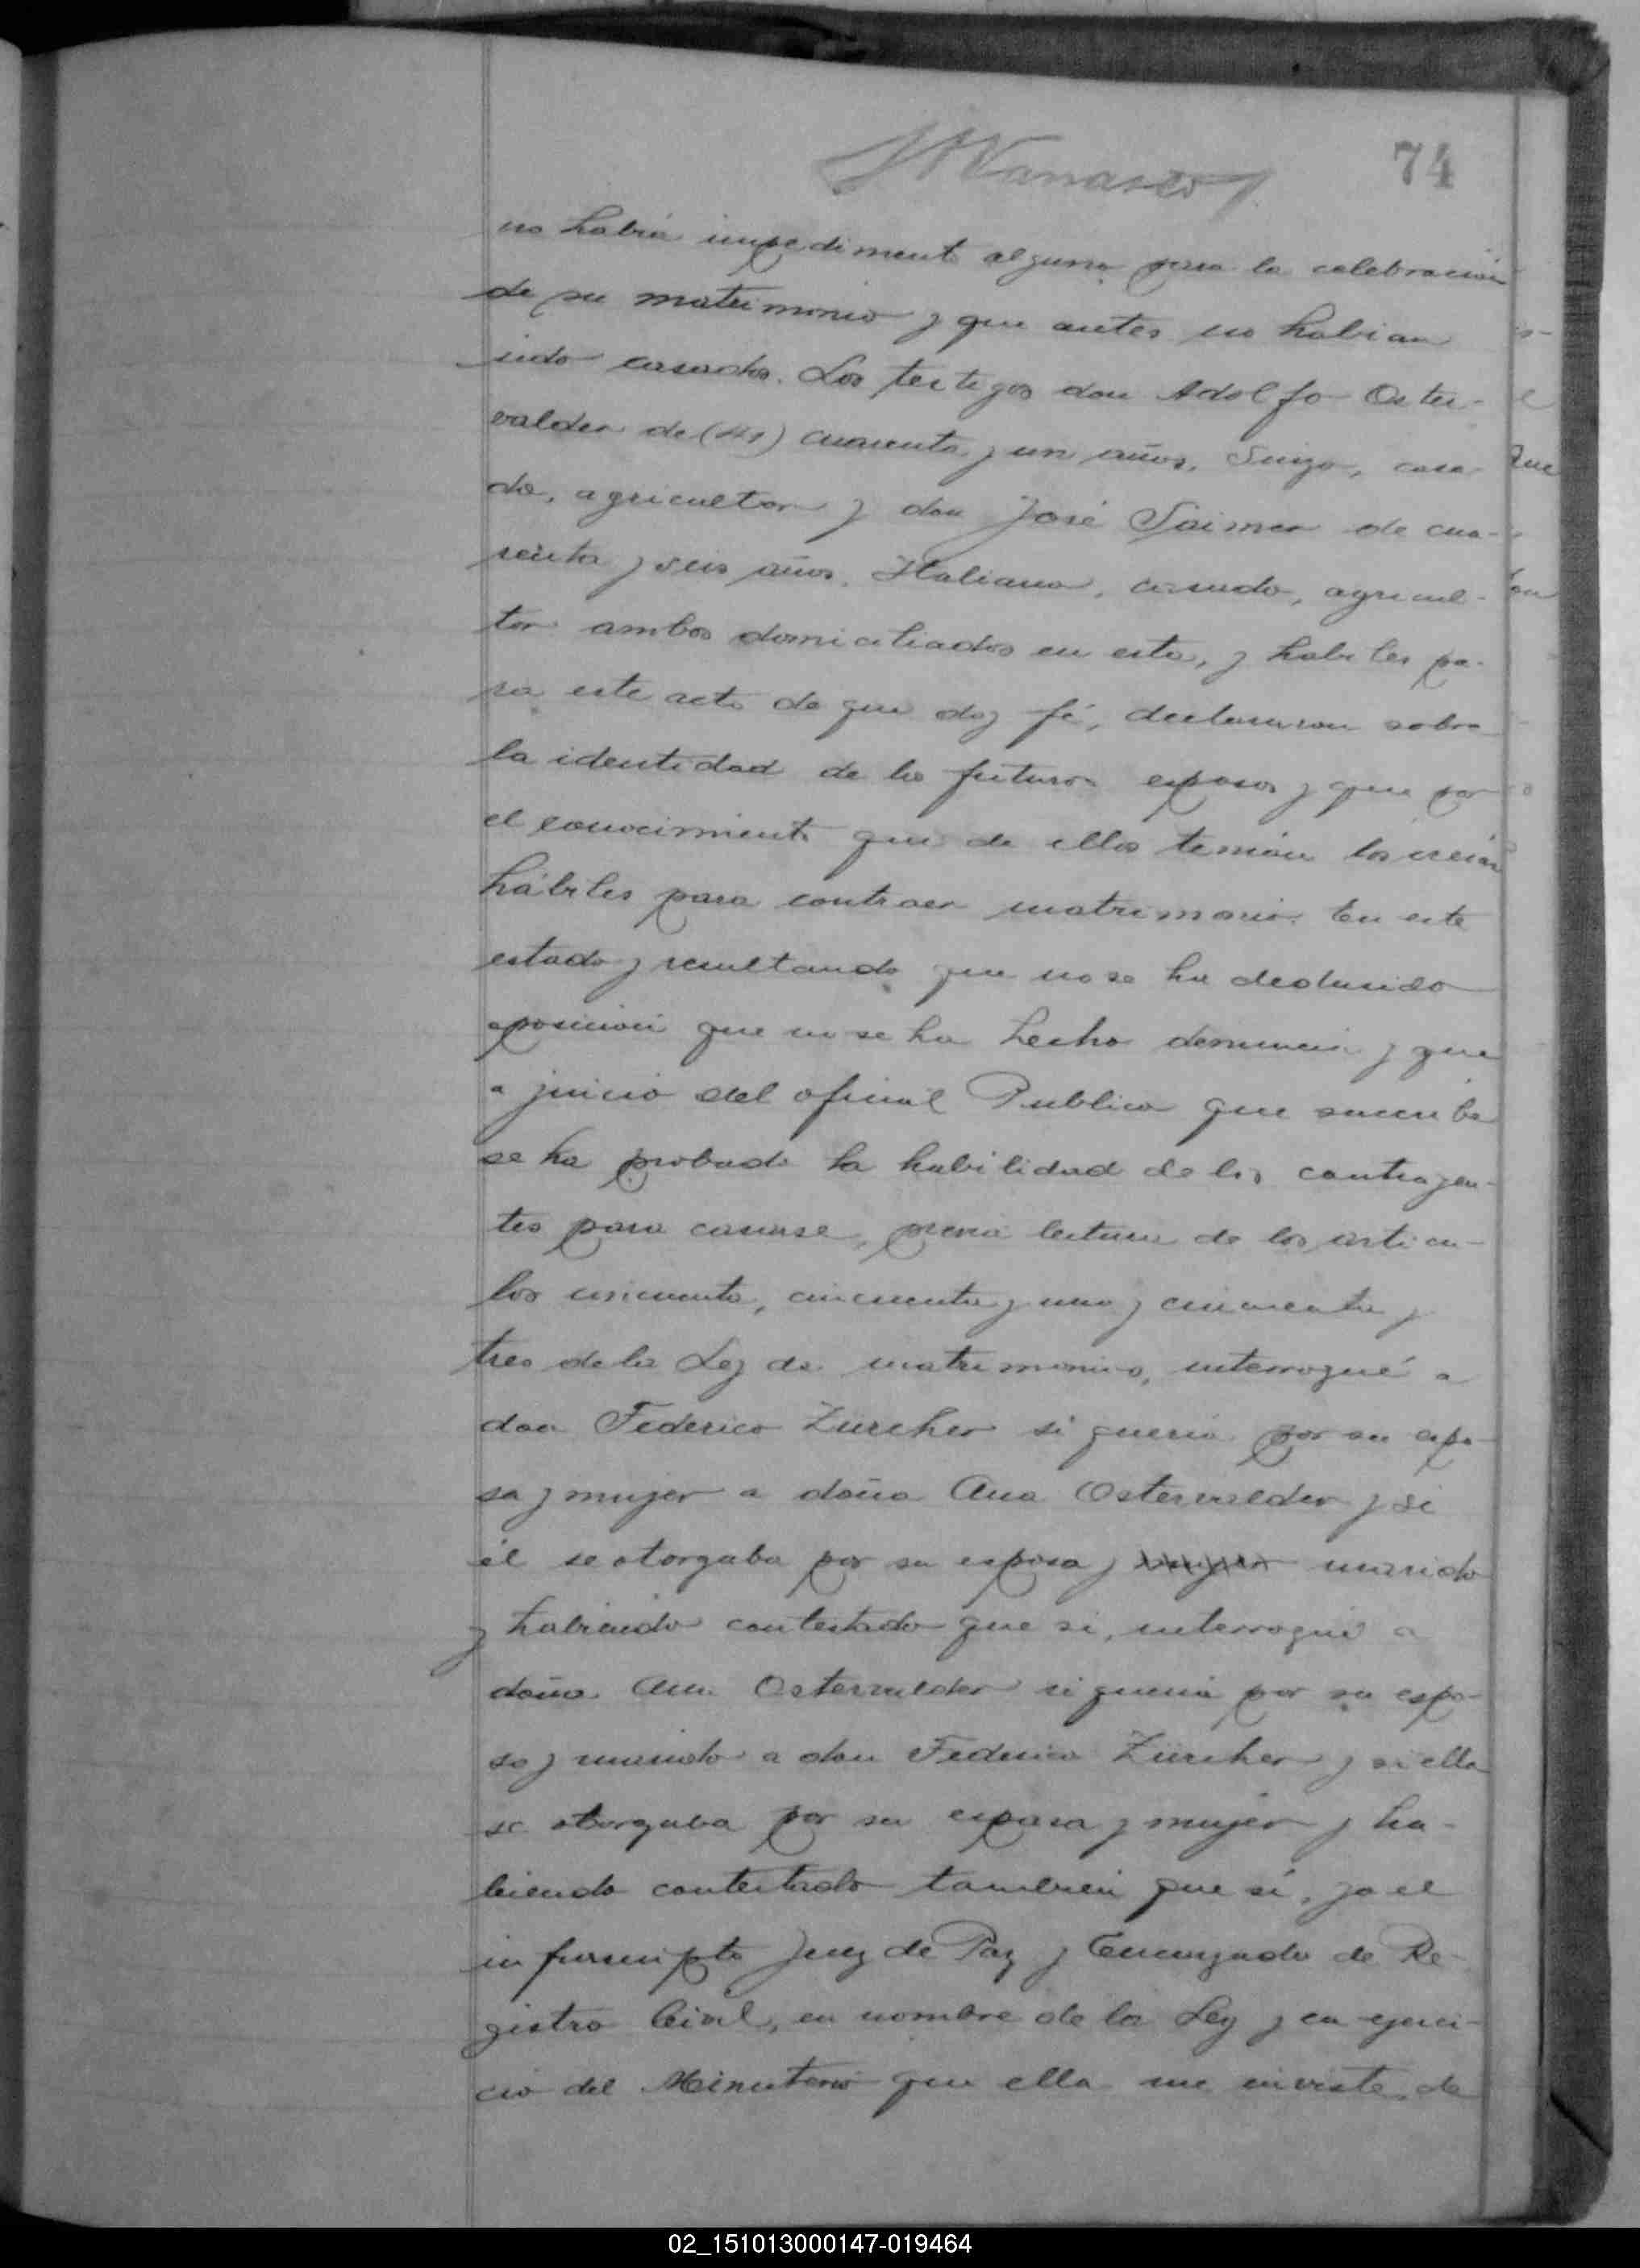 74
no habia impedimento alguno para la celebración
de su matrimonio y que antes no habian
sido casados. Los testigos don Adolfo Oster-
valder de (41) cuarenta y un años, Suizo, casa-
do, agricultor y don José Saimer de cua-
renta y seis años, Italiano, casado, agricul-
tor ambos domiciliados en esta, y habiles pa-
ra este acto de que doy fé, declararon sobre
la identidad de los futuros esposos y que por
el conocimiento que de ellos tenian los creian
hábiles para contraer matrimonio. En este
estado y resultando que no se ha deducido
oposicion que no se ha hecho denuncia y que
a juicio del oficial Publico que suscribe
se ha probado la habilidad de los contrayen-
tes para casarse, previa lectura de los articu-
los cincuenta, cincuenta y uno y cincuenta y
tres de la Ley de matrimonio, interrogué a
don Federico Zürcher si queria por su espo-
sa y mujer a doña Ana Ostervalder y si
él se otorgaba por su esposa y mujer marido
y habiendo contestado que si, interrogué a
doña Ana Ostervalder si queria por su espo-
so y marido a don Federico Zürcher y si ella
se otorgaba por su esposa y mujer y ha-
biendo contestado tambien que si, yo el
infrascripto Juez de Paz y Encargado de Re-
gistro Civil, en nombre de la Ley y en ejerci-
cio del Ministerio que ella me inviste, de
02_151013000147-019464